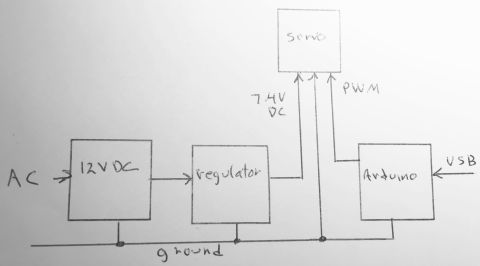 servo
7.4V
DC
PWM
AC
12VDC
regulator
Arduino
USB
ground